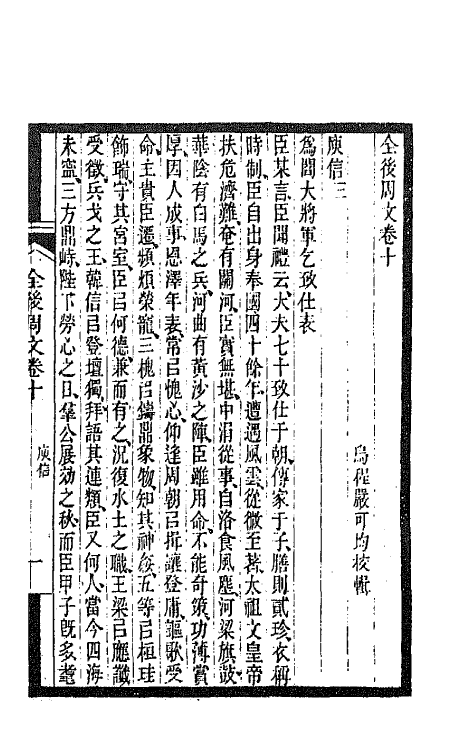 全後周文卷十
烏程嚴可均校輯
庾信三
為閻大將軍乞致仕表
臣某言臣聞禮云大夫七十致仕于朝傳家于子膳則貳珍衣稱
時制臣自出身奉國四十餘年遭遇風雲從微至著太祖文皇帝
扶危濟難奄有關河臣實無堪中涓從事自洛食風塵河梁旗鼓
華陰有白馬之兵河曲有黃沙之陣臣雖用命不能奇策功薄賞
厚因人成事恩澤年表常㠯愧心仰逢周朝㠯揖讓登庸謳歌受
命主貴臣遷頻煩榮寵三槐㠯鑄鼎象物知其神姦五等㠯桓珪
飾瑞守其宮室臣㠯何德兼而有之況復水土之職王梁㠯應讖
受徵兵戈之王韓信㠯登壇獨拜語其連類臣又何人當今四海
未寍三方鼎峙陛下勞心之日羣公展効之秋而臣甲子旣多耄
全後周文卷十
庾信
一